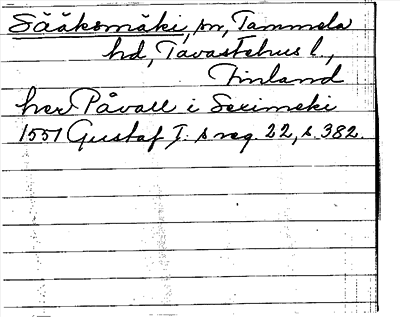 Sääksmäki, sn, Tammela
hd, Tavastehus l.,
Finland
her Påvall i Seximeki
1551 Gustaf I. s reg. 22, s. 382.